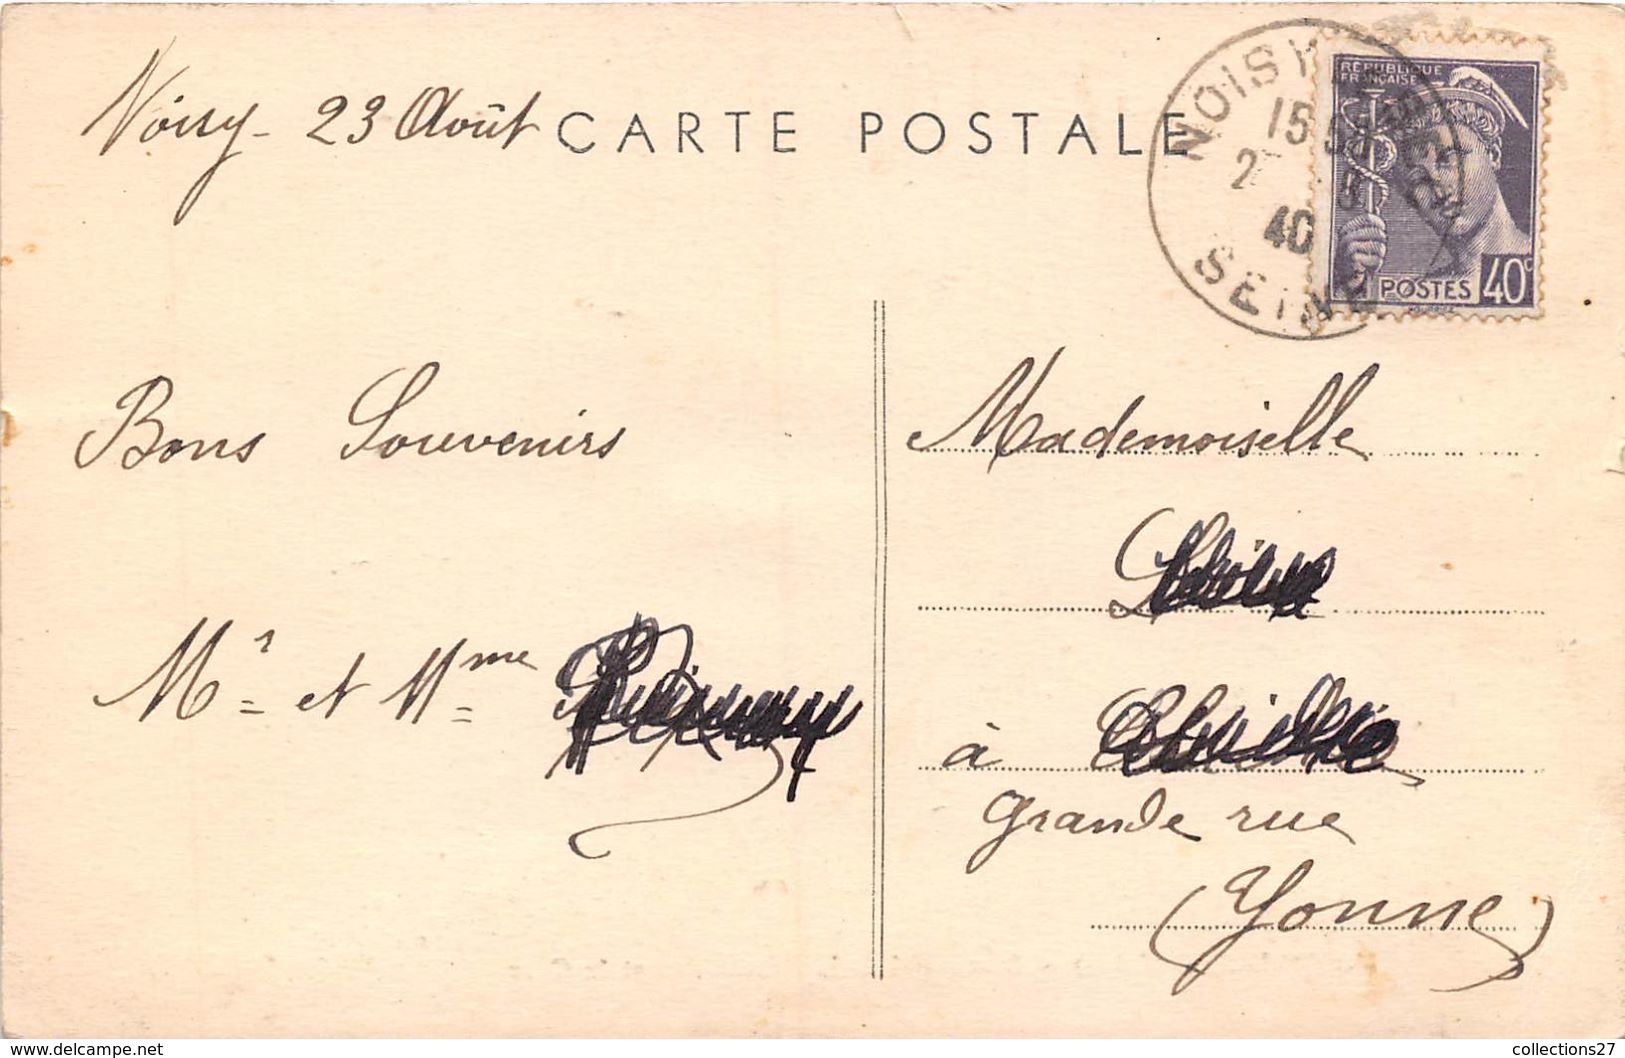 Noisy - 23 Août
CARTE POSTALE
NOISY
15
2
40
SEINE
RÉPUBLIQUE
FRANÇAISE
POSTES 40c
Bons Souvenirs
Mr et Mme
Mademoiselle
à
grande rue
(Yonne)
https://www.delcampe.net
collections27